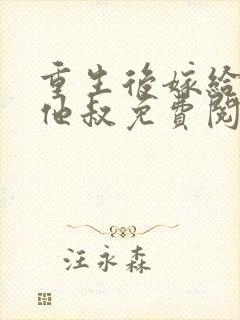 重生後嫁給
他叔免費閱
汪永森